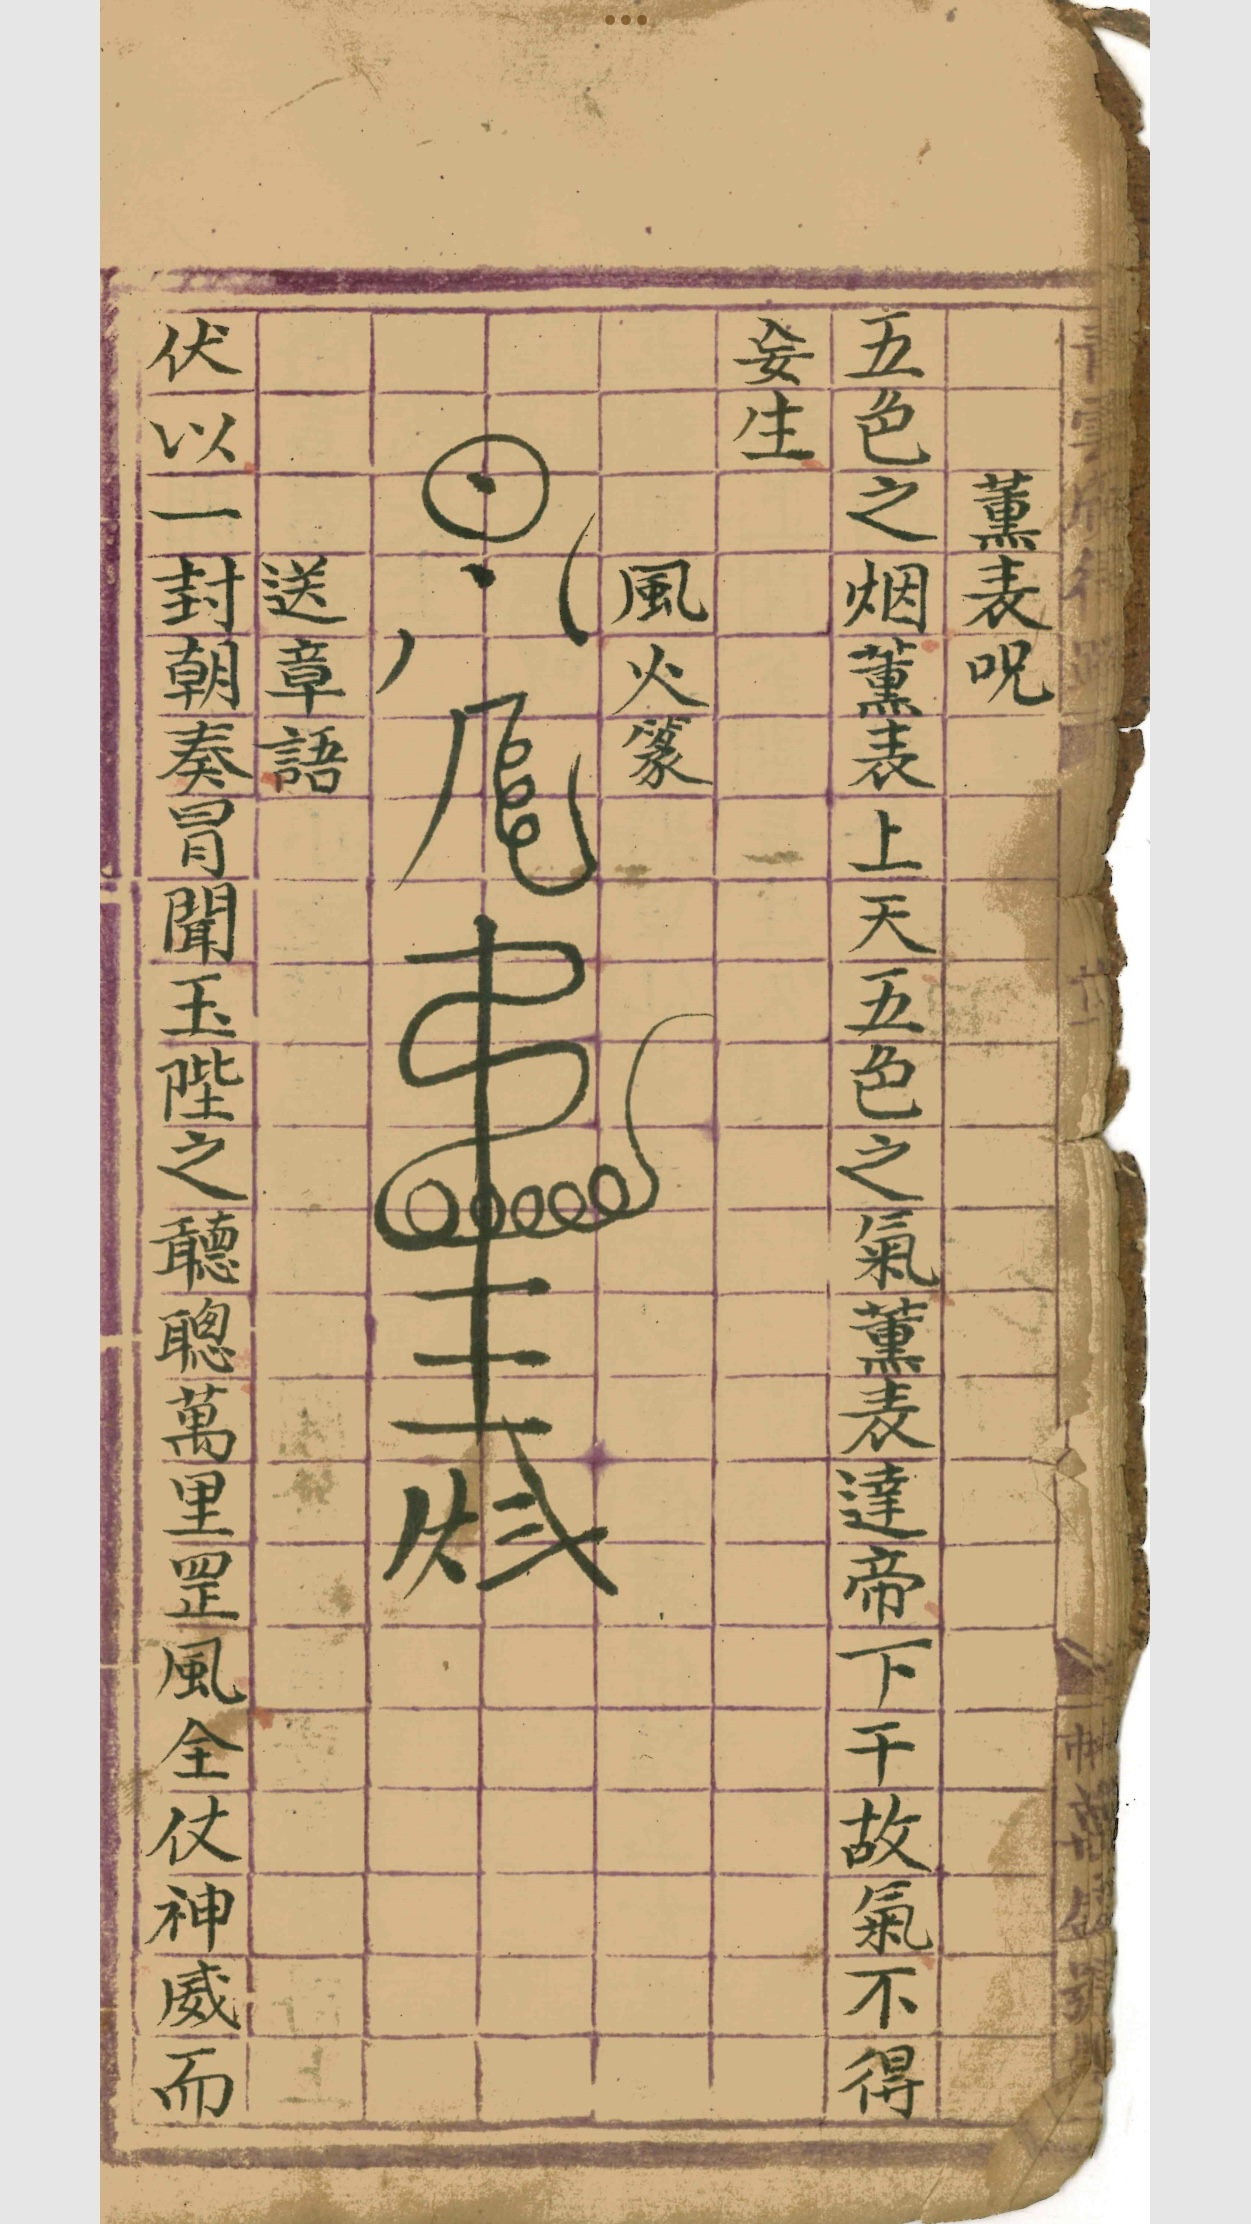 薰表呪
五色之烟薰表上天五色之氣薰表達帝下干故氣不得
妄生
風火篆
送章語
伏以一封朝奏冐聞玉陛之聽聰萬里罡風全仗神威而